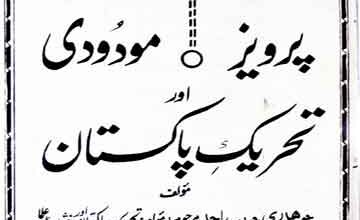 پرویز مودودی
اور
تحریکِ پاکستان
مؤلف